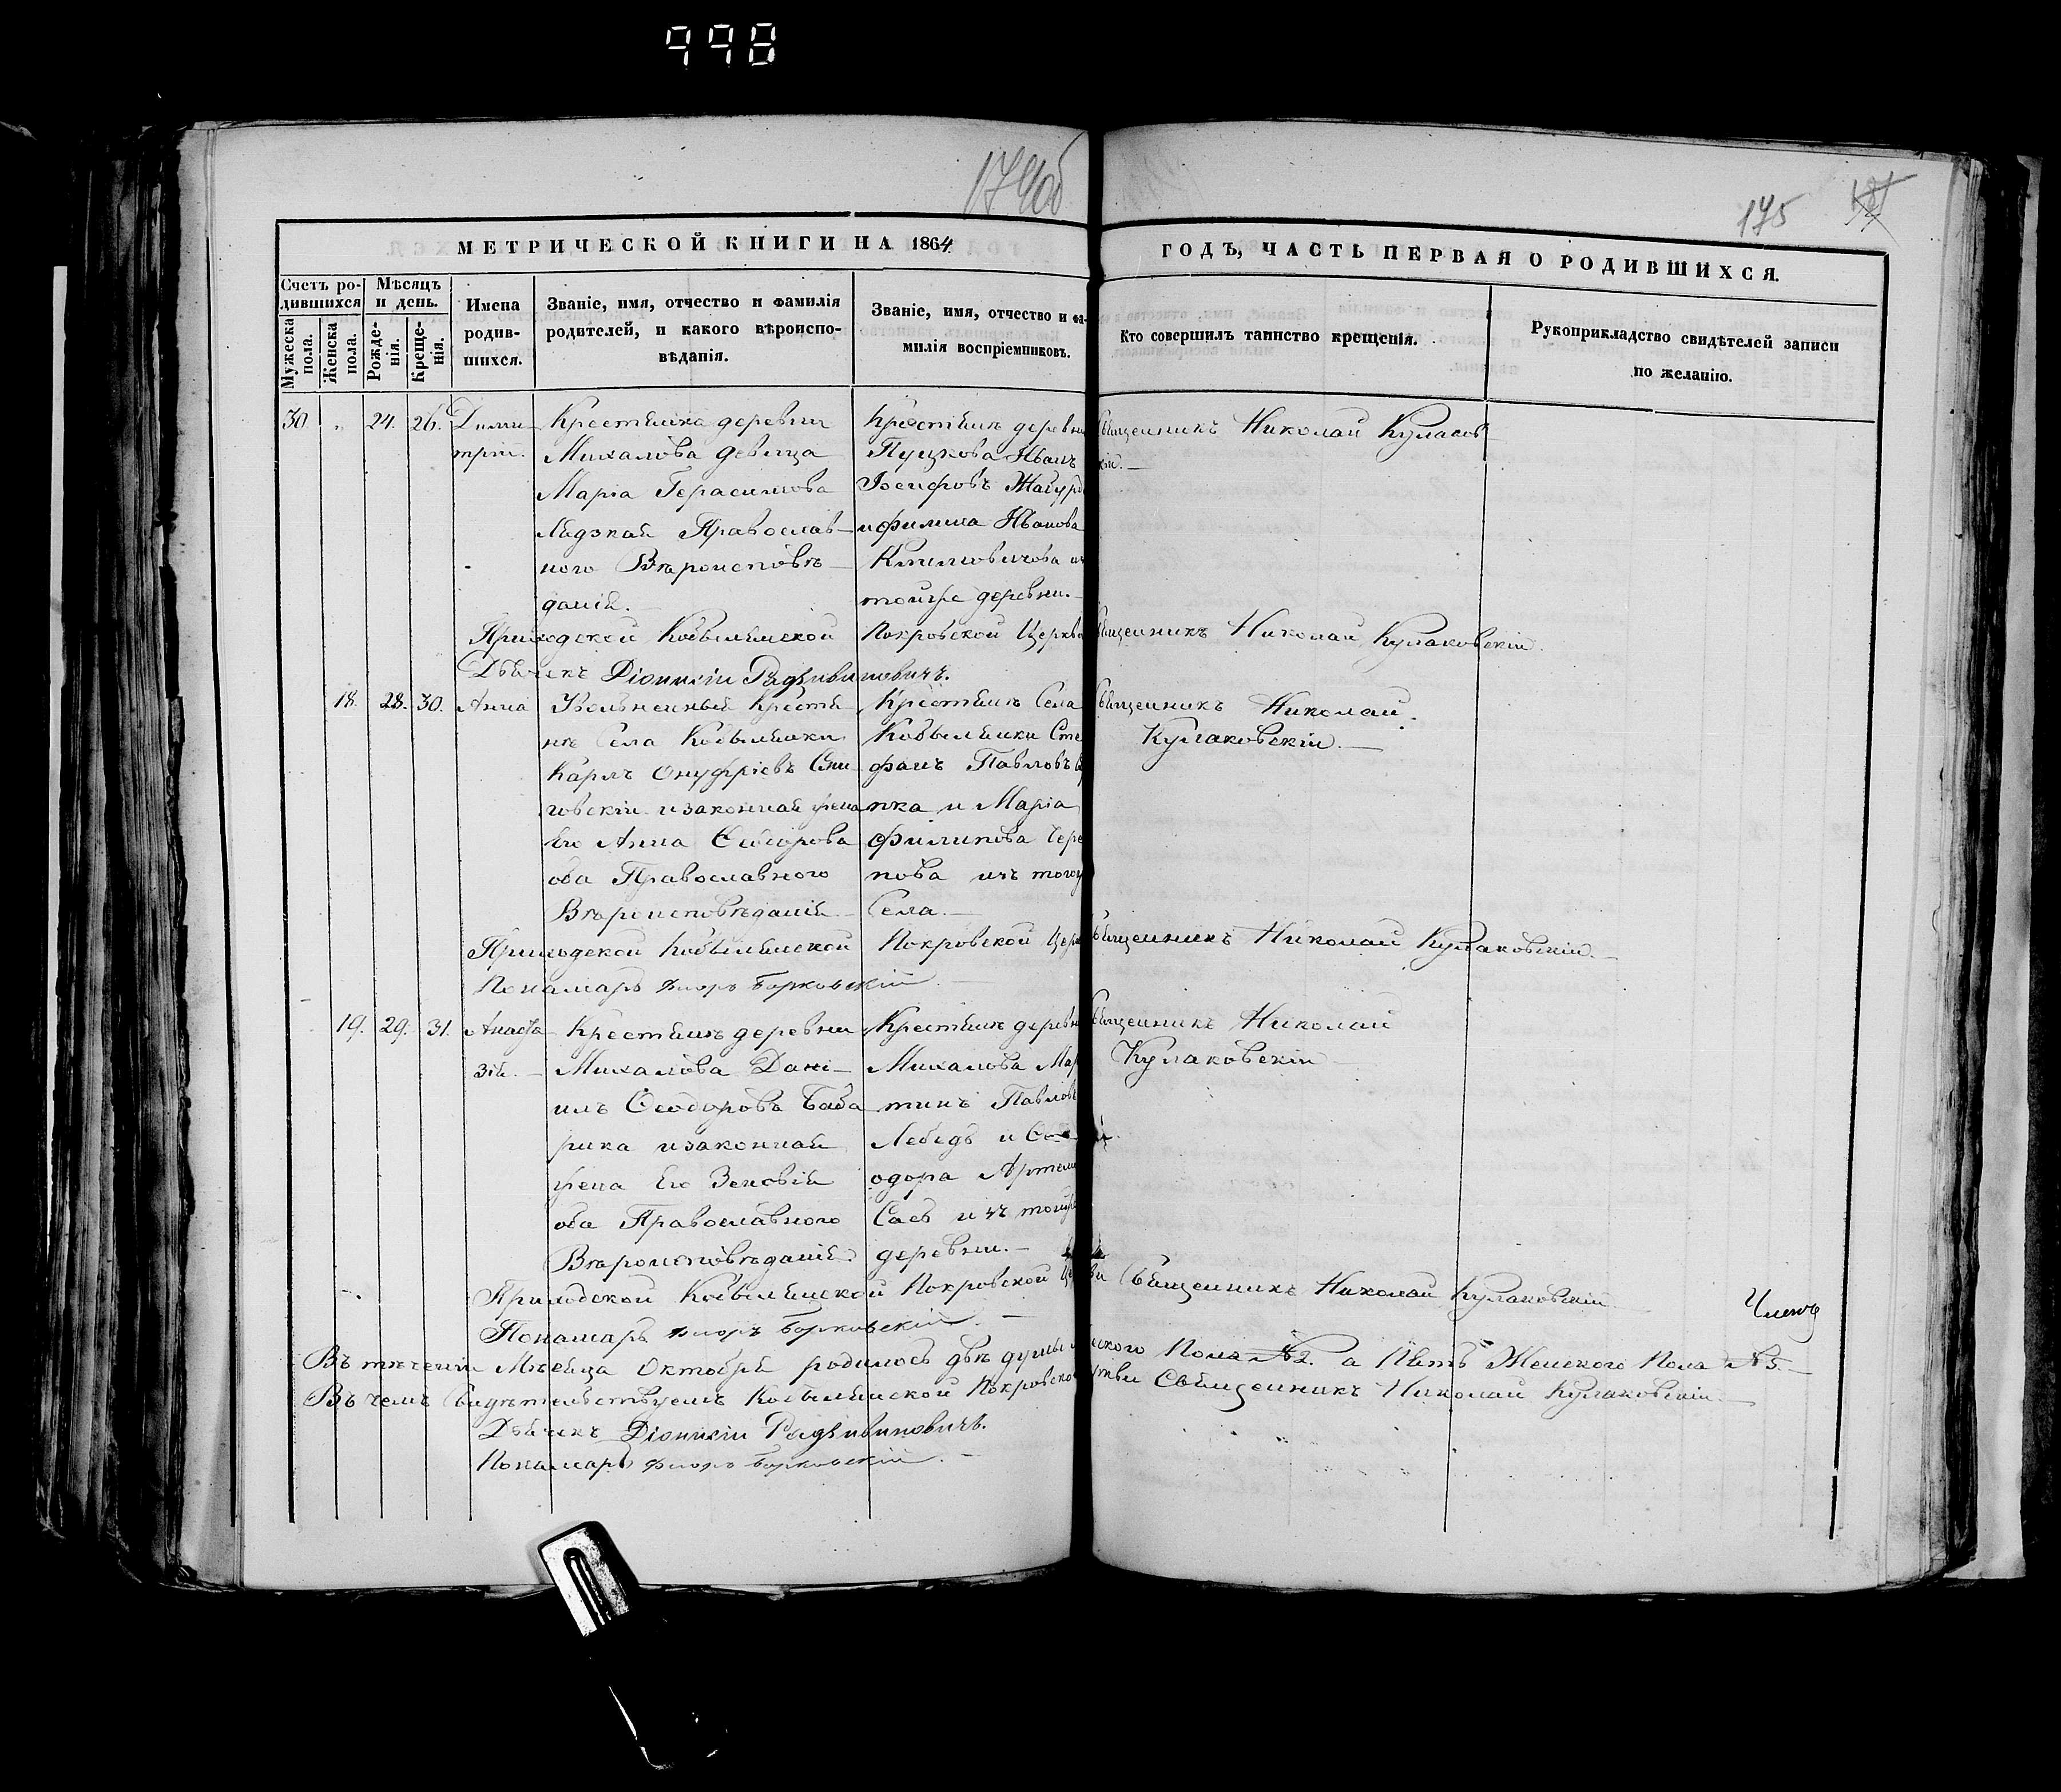 998
174об
175
МЕТРИЧЕСКОЙ КНИГИ НА 1864
ГОДЪ, ЧАСТЬ ПЕРВАЯ О РОДИВШИХСЯ.
Счетъ родившихся
Мужеска пола.
Женска пола.
Мѣсяцъ и день.
Рожденія.
Крещенія.
Имена родившихся.
Званіе, имя, отчество и фамилія родителей, и какого вѣроисповѣданія.
Званіе, имя, отчество и фамилія воспріемниковъ.
Кто совершилъ таинство крещенія.
Рукоприкладство свидѣтелей записи по желанію.
30 24. 26.
Дими
трій.
Крестьянка деревни
Михалова девица
Марія Герасимова
Православ
ного Вѣроисповѣ
данія.
Крестьянъ деревни
Пуцкова Иванъ
Іосифовъ
Иванова
изъ
тойже деревни.
Священникъ Николай Кулаков
скій.
Приходской Кобыльникской Покровской Церкви Священникъ Николай Кулаковскій.
Дьячекъ Діонисій Радзивиновичъ.
18. 28. 30.
Анна
Увольненный Крестья
нъ Села Кобыльники
Карлъ Онуфріевъ
и законная жена
Его Анна Ѳеодорова
оба Православного
Вѣроисповѣданія.
Крестьянъ Села
Кобыльники Сте
фанъ Павловъ
и Марія
Филипова Чере
пова изъ тогож
Села.
Священникъ Николай
Кулаковскій.
Приходской Кобыльникской Покровской Церкви Священникъ Николай Кулаковскій.
Понамарь Флоръ Борковскій.
19. 29. 31.
Анаста
зія.
Крестьянъ деревни
Михалова Дані
илъ Ѳеодоровъ Баба
рика и законная
жена Его Зеновія
оба Православного
Вѣроисповѣданія.
Крестьянъ деревни
Михалова Мар
тинъ Павловъ
Лебедь и Ѳе
одора Артем
изъ тойже
деревни.
Священникъ Николай
Кулаковскій
Приходской Кобыльникской Покровской Церкви Священникъ Николай Кулаковскій
Понамарь Флоръ Борковскій.
Въ теченіи Мѣсяца Октября родилось двѣ души мужского Пола №2. а Пять Женского Пола №5.
Въ чемъ Свидѣтельствуемъ Кобыльникской Покровской Церкви Священникъ Николай Кулаковскій.
Дьячекъ Діонисій Радзивиновичъ.
Понамарь Флоръ Борковскій.